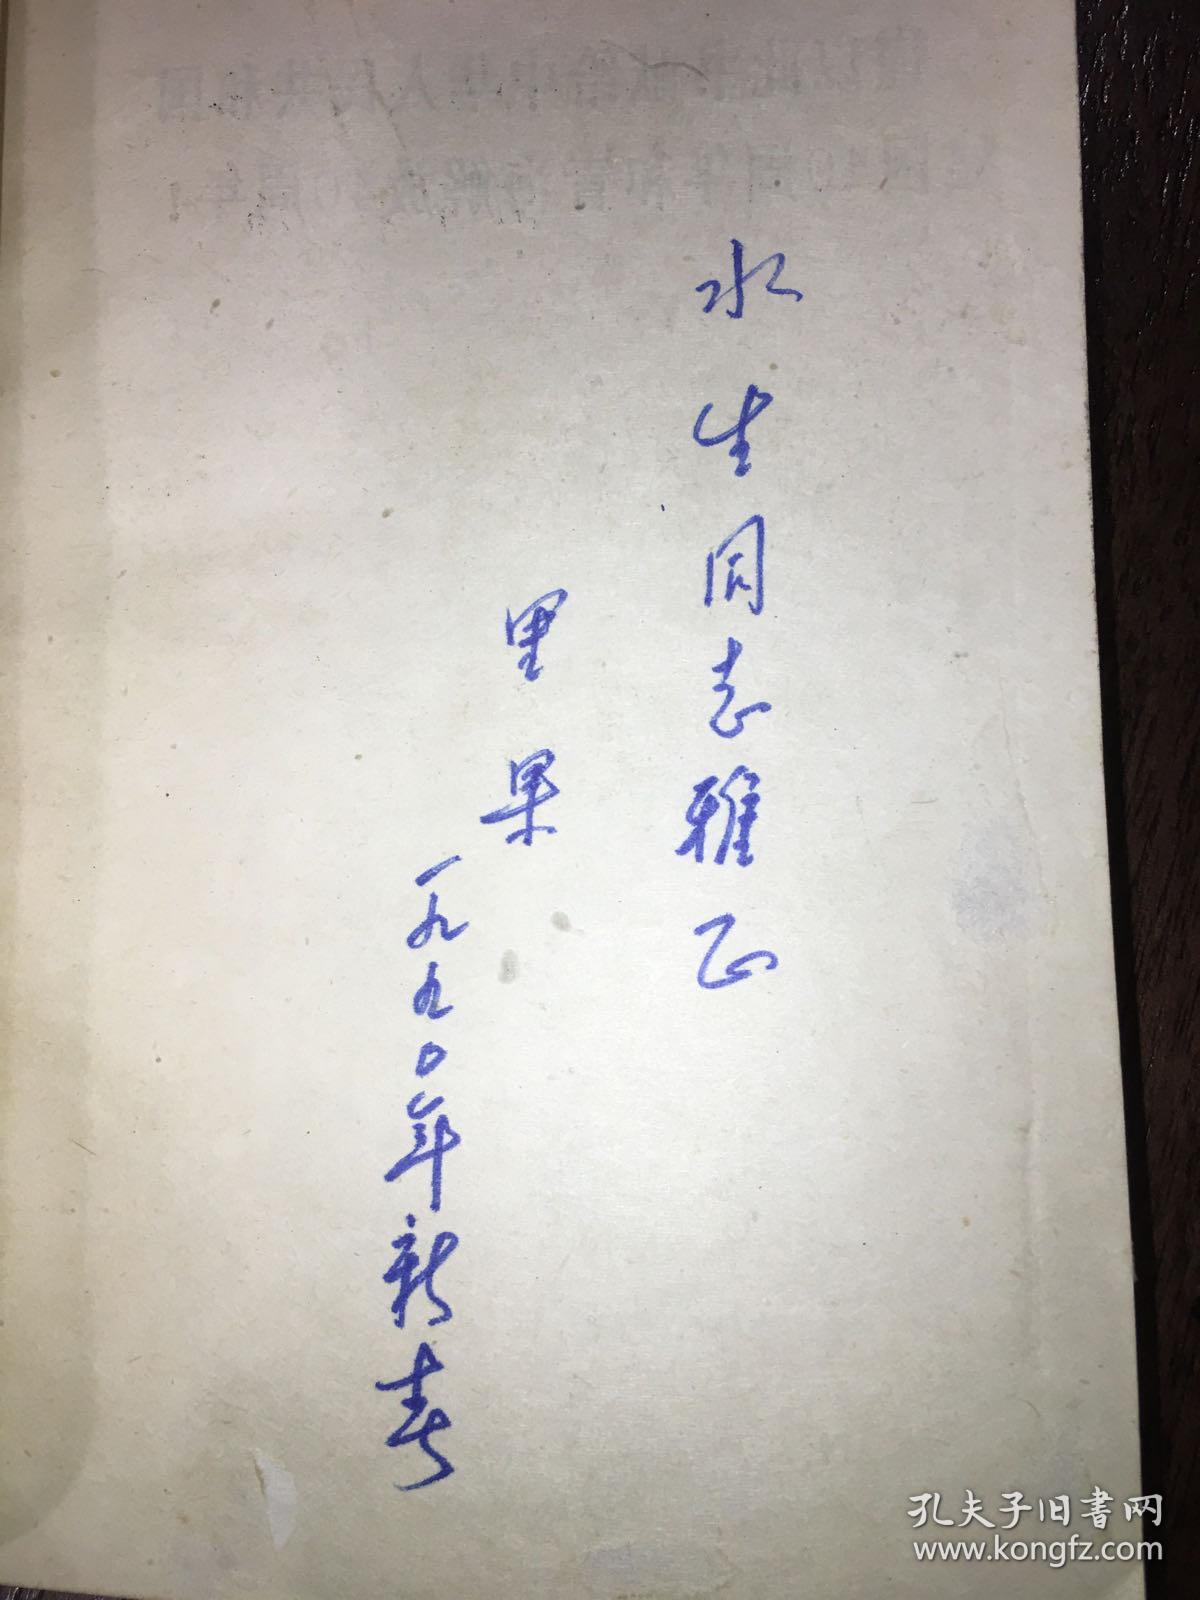 水生同志雅正
里果
一九九〇年新春
孔夫子旧书网
www.kongfz.com